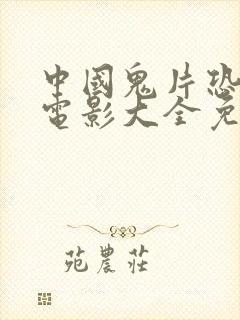 中國鬼片恐
電影大全免
苑農莊